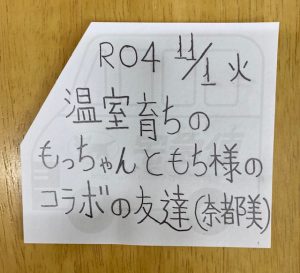 R04 11/1 火
温室育ちの
もっちゃんともち様の
コラボの友達(奈都美)